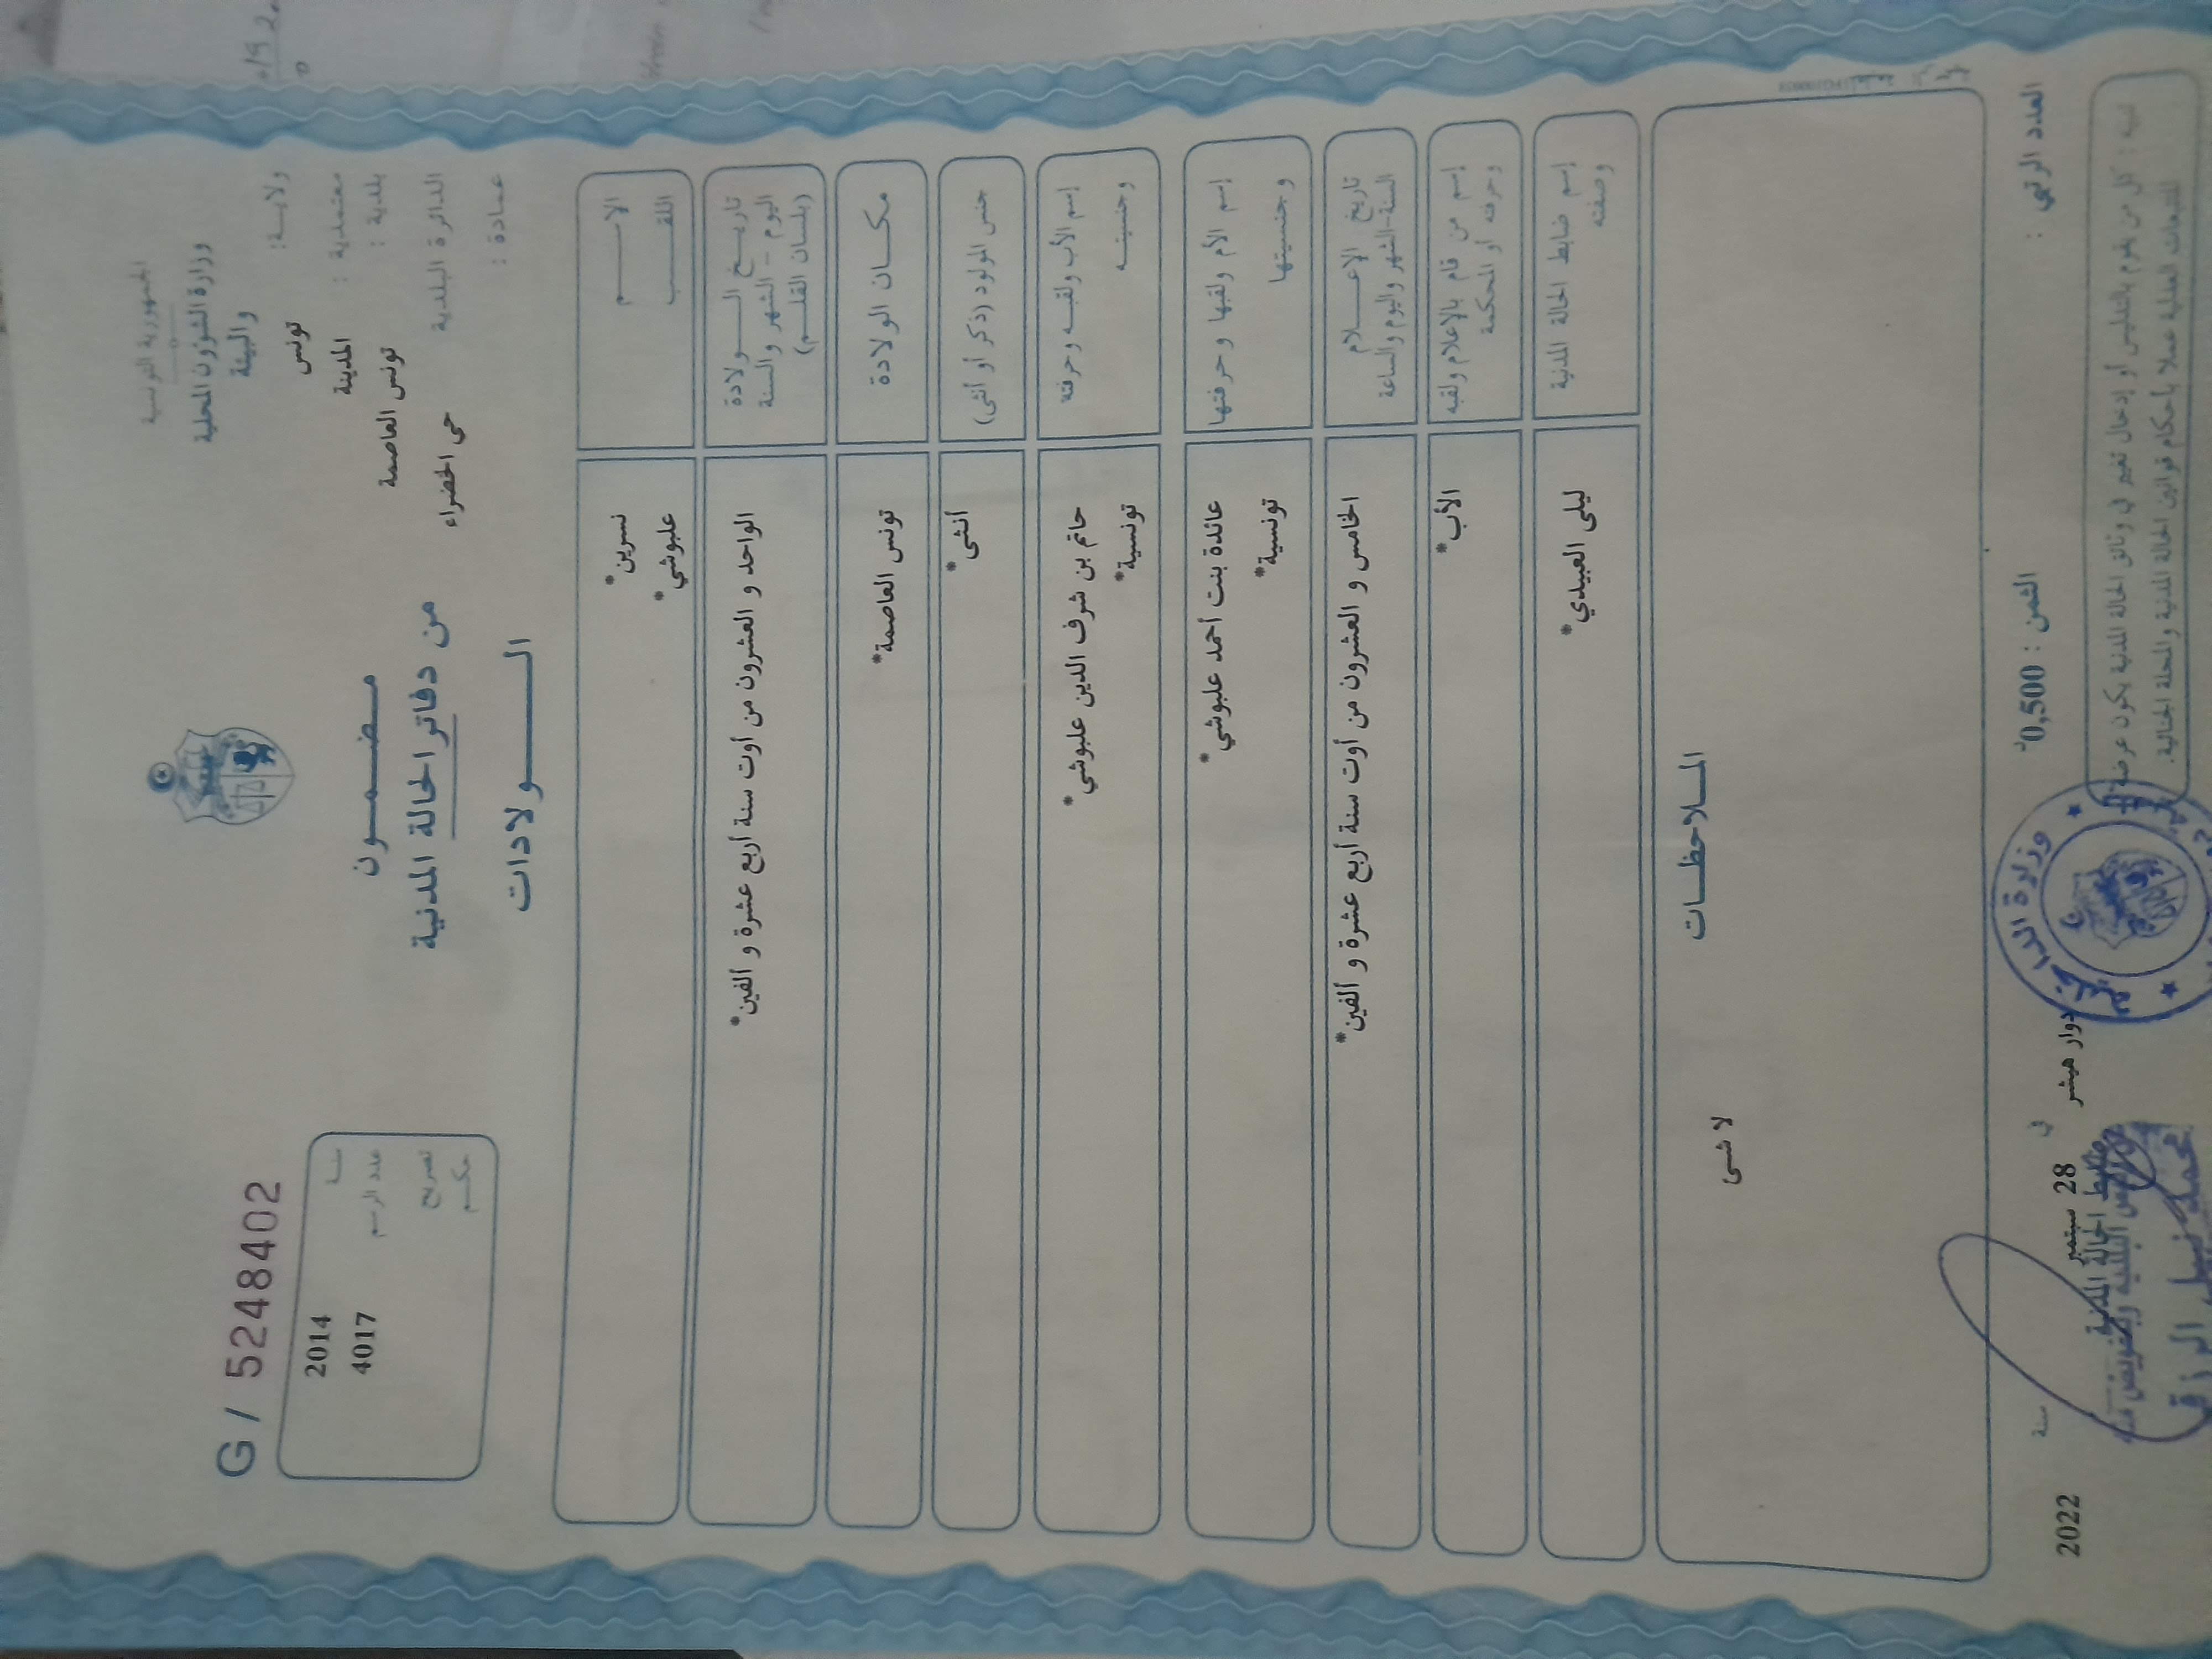 الجمهورية التونسية
وزارة الشؤون المحلية
والبيئة
ولاية : تونس
معتمدية : المدينة
بلدية : تونس العاصمة
الدائرة البلدية حي الخضراء
عمادة :
مضمون
من دفاتر الحالة المدنية
الولادات
G / 5248402
سنة 2014
عدد الرسم 4017
تصريح
حكم
الاسم نسرين*
اللقب علبوشي*
تاريخ الولادة
اليوم - الشهر والسنة
(بلسان القلم)
الواحد و العشرون من أوت سنة أربع عشرة و ألفين*
مكان الولادة تونس العاصمة*
جنس المولود (ذكر أو أنثى) أنثى*
إسم الأب ولقبه وحرفته حاتم بن شرف الدين علبوشي*
وجنسيته تونسية*
إسم الأم ولقبها وحرفتها عائدة بنت أحمد علبوشي*
وجنسيتها تونسية*
تاريخ الإعلام
السنة-الشهر واليوم والساعة
الخامس و العشرون من أوت سنة أربع عشرة و ألفين*
إسم من قام بالإعلام ولقبه
وحرفته أو المحكمة
الأب*
إسم ضابط الحالة المدنية
وصفته
ليلى العبيدي*
الملاحظات
لا شى
العدد الرتبي :
الثمن : 0,500د
دوار هيشر في 28 سبتمبر سنة 2022
تنبيه : كل من يقوم بالتدليس أو إدخال تغيير في وثائق الحالة المدنية يكون عرضة
للتتبعات العدلية عملا بأحكام قوانين الحالة المدنية والمجلة الجنائية.
وزارة الداخلية
ضابط الحالة المدنية